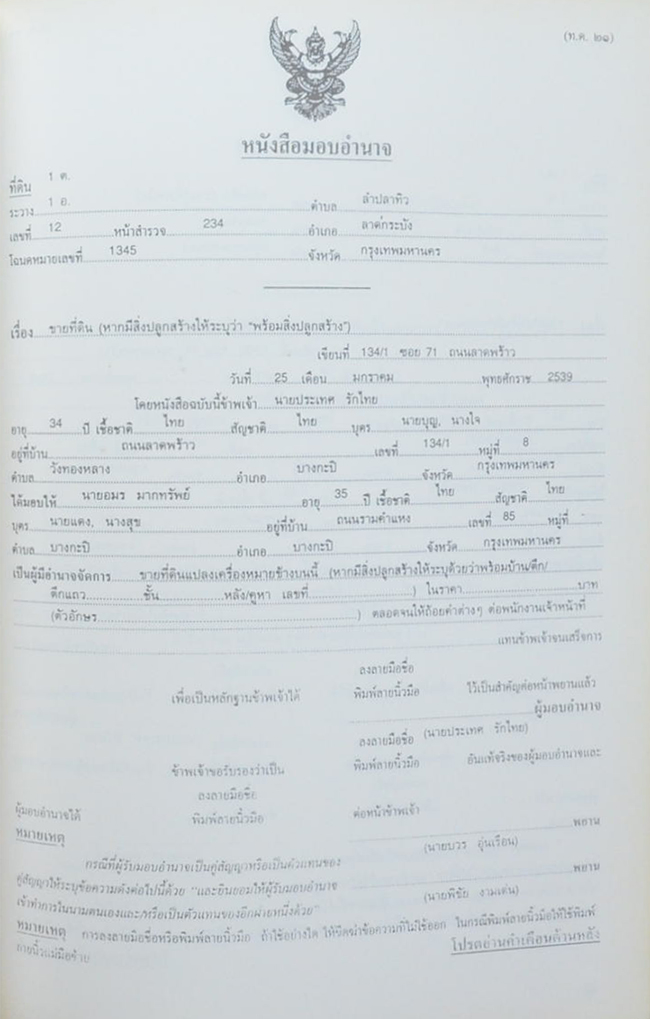 (ท.ด. ๒๑)
หนังสือมอบอำนาจ
ที่ดิน 1 ต.
ระวาง 1 อ. ตำบล ลำปลาทิว
เลขที่ 12 หน้าสำรวจ 234 อำเภอ ลาดกระบัง
โฉนดหมายเลขที่ 1345 จังหวัด กรุงเทพมหานคร
เรื่อง ขายที่ดิน (หากมีสิ่งปลูกสร้างให้ระบุว่า "พร้อมสิ่งปลูกสร้าง")
เขียนที่ 134/1 ซอย 71 ถนนลาดพร้าว
วันที่ 25 เดือน มกราคม พุทธศักราช 2539
โดยหนังสือฉบับนี้ข้าพเจ้า นายประเทศ รักไทย
อายุ 34 ปี เชื้อชาติ ไทย สัญชาติ ไทย บุตร นายบุญ, นางใจ
อยู่ที่บ้าน ถนนลาดพร้าว เลขที่ 134/1 หมู่ที่ 8
ตำบล วังทองหลาง อำเภอ บางกะปิ จังหวัด กรุงเทพมหานคร
ได้มอบให้ นายอมร มากทรัพย์ อายุ 35 ปี เชื้อชาติ ไทย สัญชาติ ไทย
บุตร นายแดง, นางสุข อยู่ที่บ้าน ถนนรามคำแหง เลขที่ 85 หมู่ที่
ตำบล บางกะปิ อำเภอ บางกะปิ จังหวัด กรุงเทพมหานคร
เป็นผู้มีอำนาจจัดการ ขายที่ดินแปลงเครื่องหมายข้างบนนี้ (หากมีสิ่งปลูกสร้างให้ระบุด้วยว่าพร้อมบ้าน/ตึก/
ตึกแถว ชั้น หลัง/คูหา เลขที่ ) ในราคา บาท
(ตัวอักษร ) ตลอดจนให้ถ้อยคำต่างๆ ต่อพนักงานเจ้าหน้าที่
แทนข้าพเจ้าจนเสร็จการ
ลงลายมือชื่อ
เพื่อเป็นหลักฐานข้าพเจ้าได้ พิมพ์ลายนิ้วมือ ไว้เป็นสำคัญต่อหน้าพยานแล้ว
ผู้มอบอำนาจ
ลงลายมือชื่อ (นายประเทศ รักไทย)
ข้าพเจ้าขอรับรองว่าเป็น พิมพ์ลายนิ้วมือ อันแท้จริงของผู้มอบอำนาจและ
ลงลายมือชื่อ
ผู้มอบอำนาจได้ พิมพ์ลายนิ้วมือ ต่อหน้าข้าพเจ้า
พยาน
หมายเหตุ
(นายบวร อุ่นเรือน)
กรณีที่ผู้รับมอบอำนาจเป็นคู่สัญญาหรือเป็นตัวแทนของ
พยาน
คู่สัญญาให้ระบุข้อความดังต่อไปนี้ด้วย "และยินยอมให้ผู้รับมอบอำนาจ
(นายพิชัย งามเด่น)
เข้าทำการในนามตนเองและ/หรือเป็นตัวแทนของอีกฝ่ายหนึ่งด้วย"
หมายเหตุ การลงลายมือชื่อหรือพิมพ์ลายนิ้วมือ ถ้าใช้อย่างใด ให้ขีดฆ่าข้อความที่ไม่ใช้ออก ในกรณีพิมพ์ลายนิ้วมือให้ใช้พิมพ์
ลายนิ้วแม่มือซ้าย
โปรดอ่านคำเตือนด้านหลัง